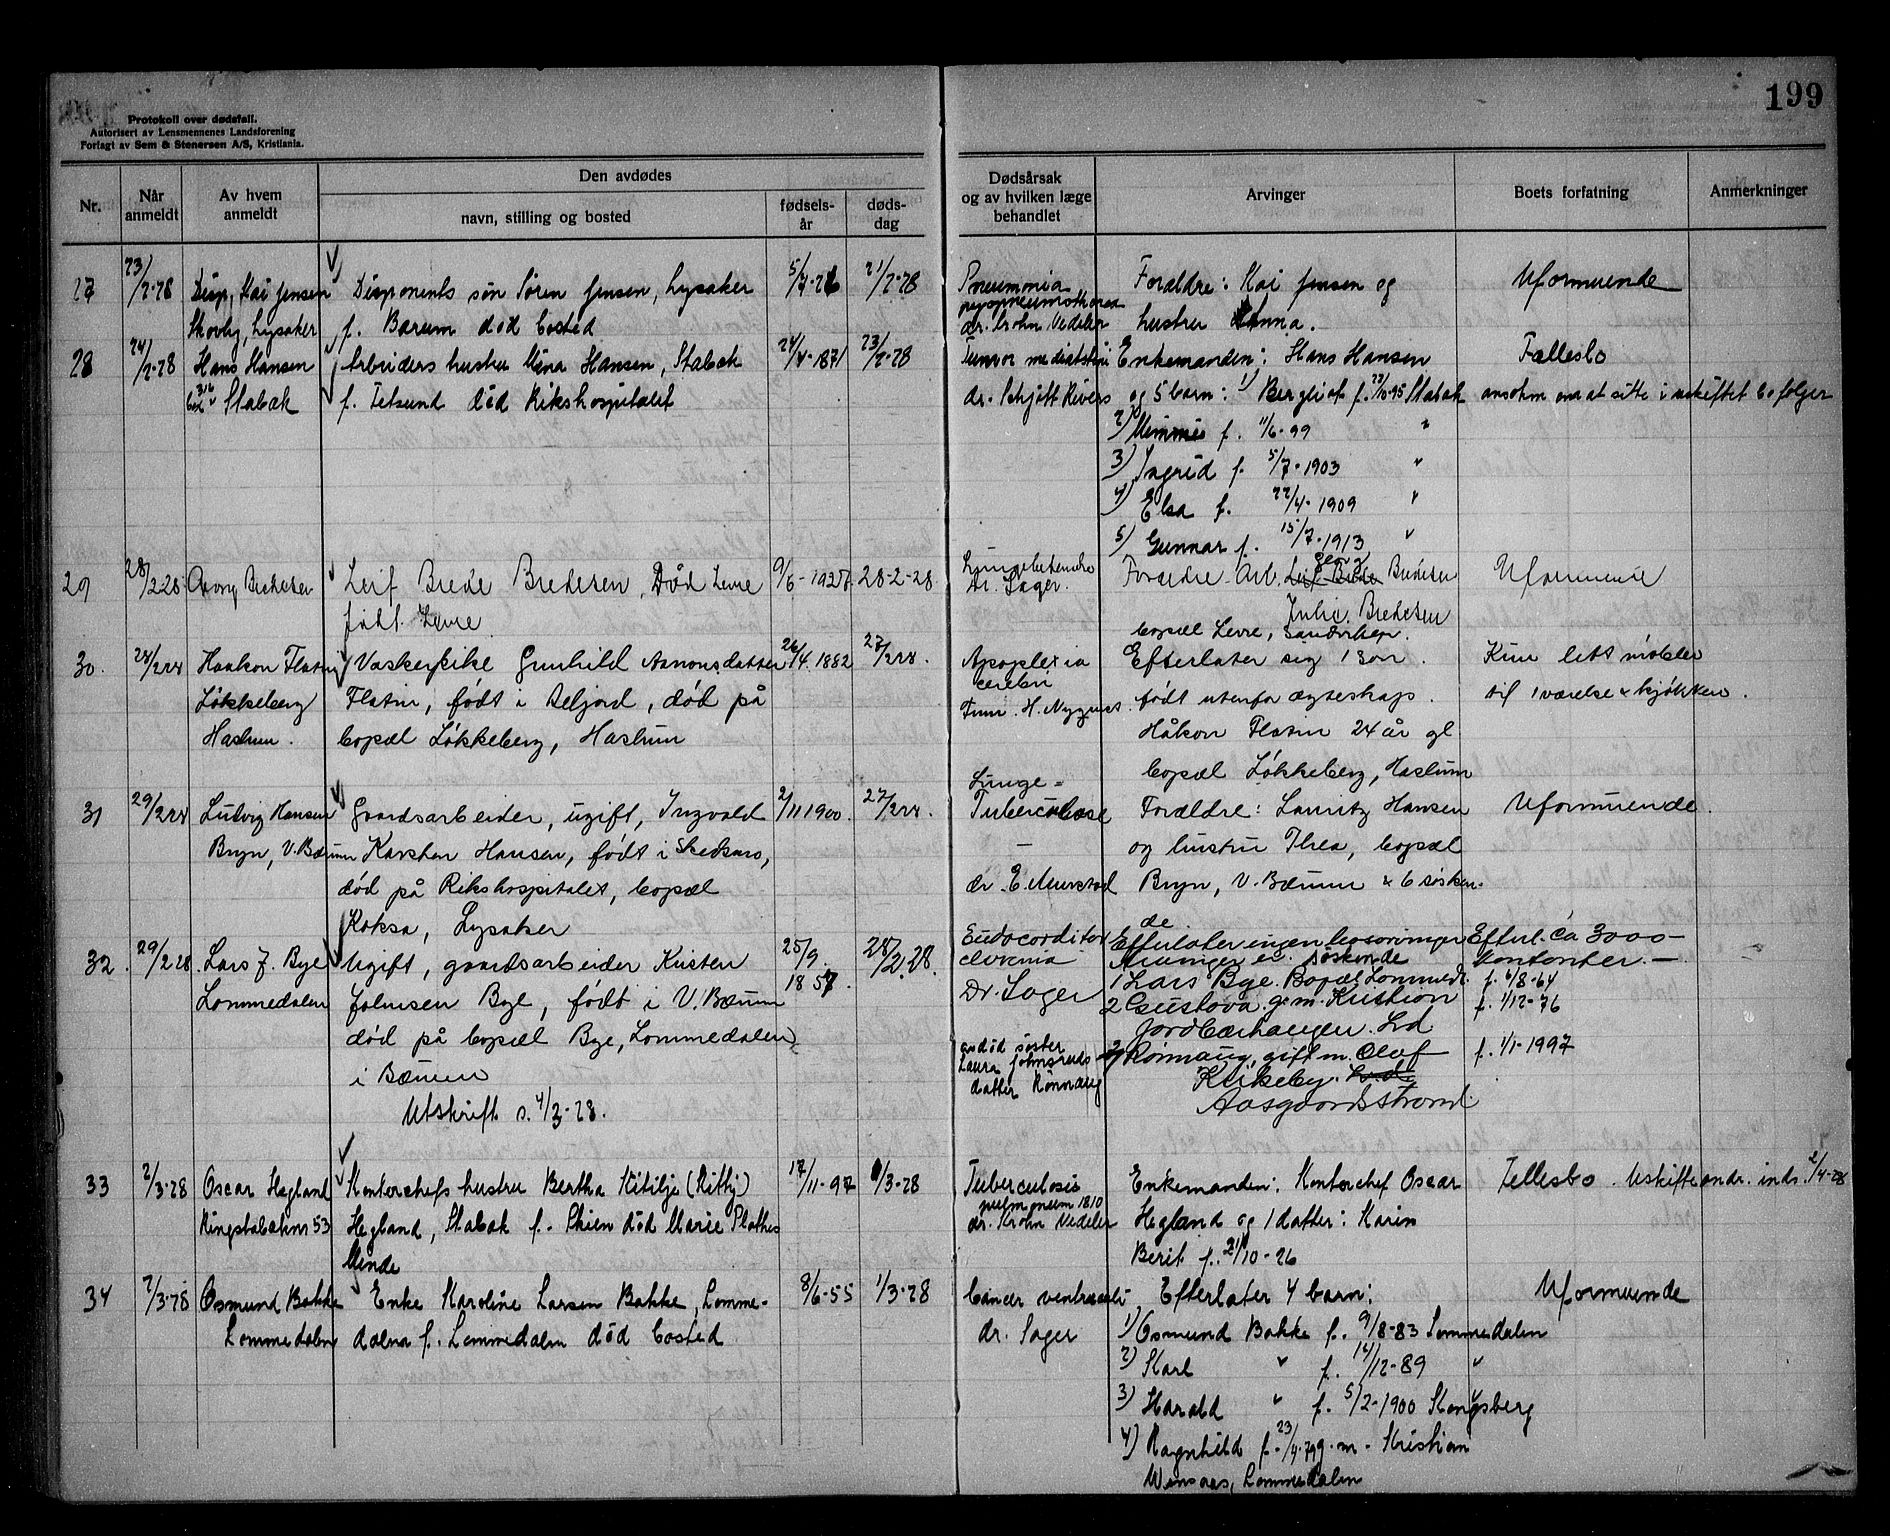 199
Protokoll over dødsfall.
Autorisert av Lensmennenes Landsforening
Forlagt av Sem & Stenersen A/S, Kristiania.
Nr.
Når anmeldt
Av hvem anmeldt
Den avdødes
navn, stilling og bosted
fødselsår
dødsdag
Dødsårsak og av hvilken læge behandlet
Arvinger
Boets forfatning
Anmerkninger
27 23/2-28 Disp. Kai Jensen Disponents søn Sören Jensen, Lysaker 21/2-28 Pneumonia Foreldre: Kai Jensen og Uformuende
Skovly, Lysaker f. Bærum död bosted dr. Krohn Vedeler hustru Anna.
28 24/2-28 Hans Hansen Arbeiders hustru Mina Hansen, Stabæk 24/4-1871 23/2-28 Tumor mediastini Enkemanden: Hans Hansen Fællesbo
Stabæk f. Fetsund död Rikshospitalet dr. Schjøtt Rivers og 5 barn: 1) Bergliot f. 23/10-95 Stabæk ansökn om at sitte i uskiftet bo følger
2) Mimmi f. 11/6-99 "
3) Ingrid f. 5/7-1903 "
4) Elsa f. 22/4-1909 "
5) Gunnar f. 15/7-1913 "
29 28/2 28 Georg Bredesen Leif Brede Bredesen, Død Levre 9/6-1927 28-2-28 Foreldre Arb. Georg Bredesen Uformuende
født Levre Dr. Sager. Julie Bredesen
bopæl Levre, Sandvika.
30. 28/2 28 Haakon Flatin Vaskepike Gunhild Aanonsdatter 26/4.1882 28/2 28. Apoplexia cerebri Efterlater sig 1 søn. Kun litt møbler
Løkkeberg Flatin, født i Seljord, død på født utenfor ægteskap. til 1 værelse & kjøkken.
Haslum. bopæl Løkkeberg, Haslum Håkon Flatin 24 år gl
bopæl Løkkeberg, Haslum
31 29/2 28 Ludvig Hansen Gaardsarbeider, ugift, Ingvald 2/11 1900. 27/2 28. Lunge=Tuberculose Forældre: Lauritz Hansen Uformuende.
Bryn, V. Bærum Karsten Hansen, født i Skedsmo, og hustru Thea, bopæl
død på Rikshospitalet, bopæl dr. E. Aurstad Bryn, V. Bærum & 6 søsken.
Koksa, Lysaker
32. 29/2 28. Lars J. Bye Ugift, gaardsarbeider Kristen 25/9. 1857. 28/2.28. Efterlater ingen livsarvinger Efterl. ca 3000—
Lommedalen Johnsen Bye, født i V. Bærum Arvinger er søskende kontanter. —
død på bopæl Bye, Lommedalen Dr. Sager 1 Lars Bye. Bopæl Lommed. f. 6/8-64
i Bærum 2 Gustava g. m. Kristian f. 1/12-76
Jordbærhaugen. Lrd
Utskrift s. 4/3-28. avdød søster Laura Johnsruds datter Rönnaug 3 Rönnaug, gift m. Olaf f. 1/1-1997
Kirkeby.
Aasgaardstrand.
33 2/3-28 Oscar Hegland Kontorchefs hustru Bertha Kitilje (Kitty) 17/11-97 1/3-28 Tuberculosis pulmonum 1810 Enkemanden: Kontorchef Oscar Fellesbo. Uskifteandr. inds. 2/4-28
Ringstabækvn 53 Hegland, Stabæk f. Skien död Marie Plathes Minde dr. Krohn Vedeler Hegland og 1 datter: Karin
Berit f. 21/10-26
34 2/3-28 Osmund Bakke Enke Karoline Larsen Bakke, Lomme- 8/6-55 1/3-28 Cancer ventriculi Efterlater 4 barn: Uformuende
Lommedalen dalen f. Lommedalen död bosted dr. Sager 1) Osmund Bakke f. 9/8-83 Lommedalen
2) Karl " f. 14/12-89 "
3) Harald " f. 5/2-1900 Kongsberg
4) Ragnhild f. 23/4-79 g. m. Kristian
Lommedalen